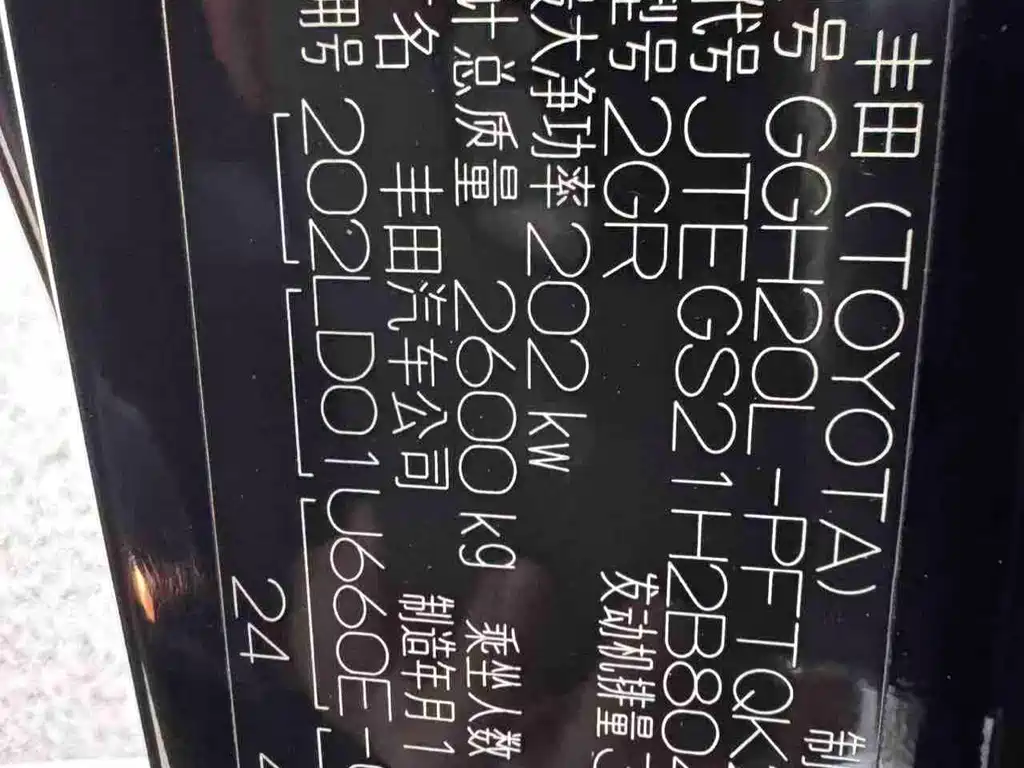 丰田(TOYOTA) 制
号 GGH20L-PFTQK
代号 JTEGS21H2B80
型号 2GR 发动机排量
大净功率 202 kw
计总质量 2600 kg 乘坐人数
名 丰田汽车公司 制造年月 1
号 202 LD01 U660E -
24